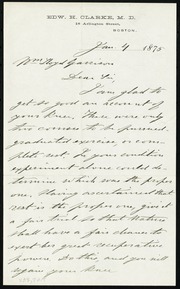 EDW. H. CLARKE, M. D.
18 Arlington Street,
BOSTON.
Jan. 4 1875
Wm Lloyd Garrison
Dear Sir,
I am glad to
get so good an account of
your knee. There were only
two courses to be pursued
graduated exercise or com-
plete rest. In your condition
experiment alone could de-
termine which was the proper
one. Having ascertained that
rest is the proper one, give it
a fair trial so that Nature
shall have a fair chance to
exert her great recuperative
powers. Do this, and you will
regain your knee.